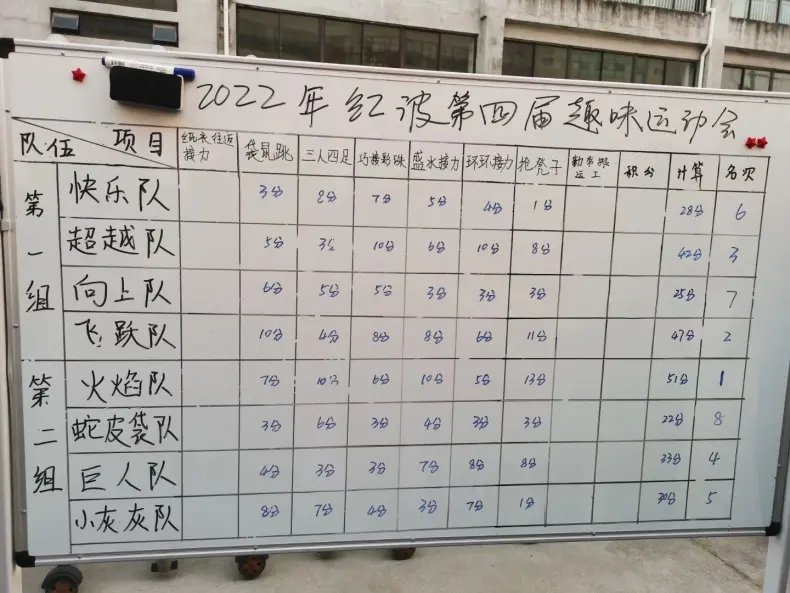 2022年红波第四届趣味运动会
队伍 项目 纸衣往返接力 袋鼠跳 三人四足 巧接彩球 盛水接力 环环接力 抢凳子 勤劳搬运工 积分 计算 名次
第一组
快乐队 3分 8分 7分 5分 4分 1分 28分 6
超越队 5分 3分 10分 6分 10分 8分 42分 3
向上队 6分 5分 5分 3分 3分 3分 25分 7
飞跃队 10分 4分 8分 8分 6分 11分 47分 2
第二组
火焰队 7分 10分 6分 10分 5分 13分 51分 1
蛇皮袋队 3分 6分 3分 4分 3分 3分 22分 8
巨人队 4分 3分 3分 7分 8分 8分 33分 4
小灰灰队 8分 7分 4分 3分 7分 1分 30分 5